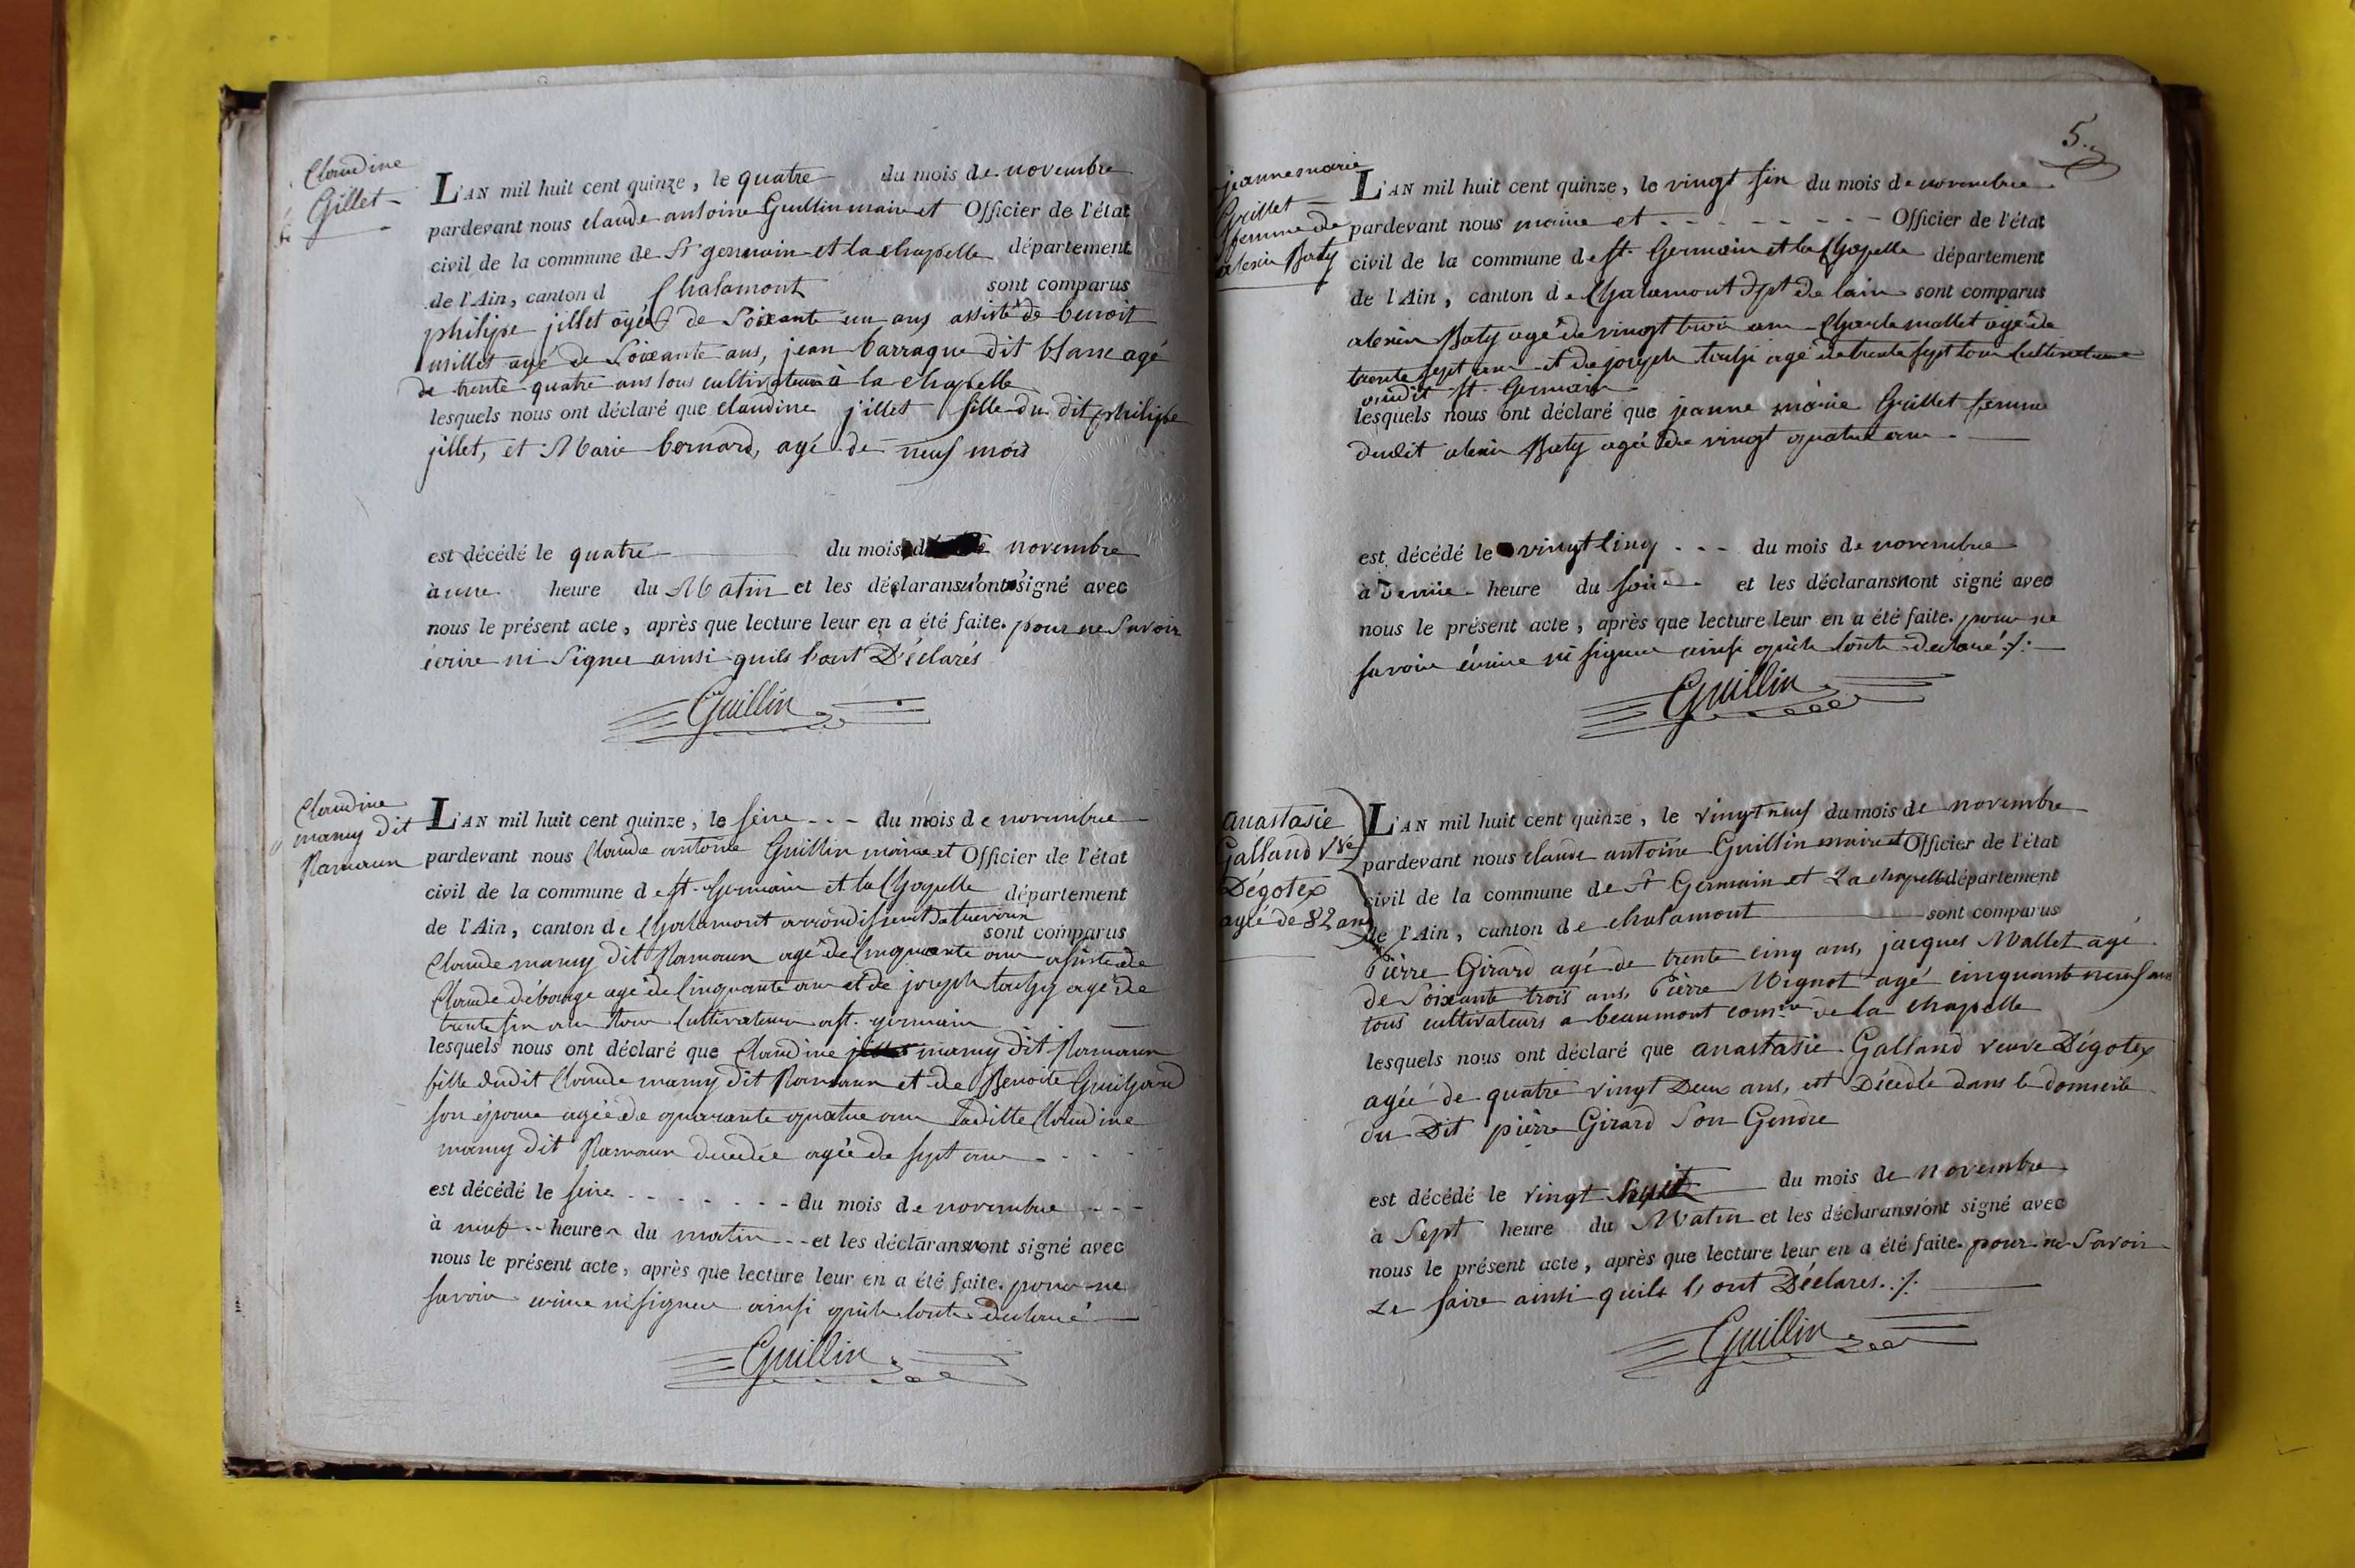 Claudine
Gillet
L'AN mil huit cent quinze, le quatre du mois de novembre
pardevant nous claude antoine Guillin maire et Officier de l'état
civil de la commune de St germain et la chapelle département
de l'Ain, canton d Chalamont sont comparus
philipe jillet agéé de Soixante un ans assisté de benoit
millet agé de Soixante ans, jean barraque dit blanc agé
de trente quatre ans tous cultivateurs à la chapelle
lesquels nous ont déclaré que claudine jillet fille du dit philipe
jillet, et Marie bernard, agé de neuf mois
est décédé le quatre du mois d novembre
à une heure du Matin et les déclarans n'ont signé avec
nous le présent acte, après que lecture leur en a été faite. pour ne Savoir
écrire ni Signer ainsi quils l'ont Déclarés
Guillin
Claudine
mamy dit
Ramaun
L'AN mil huit cent quinze, le seize du mois de novembre
pardevant nous Claude antoine Guillin maire et Officier de l'état
civil de la commune de st. Germain et la Chapelle département
de l'Ain, canton de Chalamont arrondissement de trevoux
sont comparus
Claude mamy dit Ramaun agé de Cinquante ans assisté de
Claude débarge agé de Cinquante ans et de joseph agé de
trente six ans tous Cultivateurs a st. germain
lesquels nous ont déclaré que Claudine mamy dit Ramaun
fille dudit Claude mamy dit Ramaun et de Benoite
son épouse agée de quarante quatre ans Laditte Claudine
mamy dit Ramaun décédée agée de sept ans
est décédé le seize du mois de novembre
à neuf heures du matin et les déclarans n'ont signé avec
nous le présent acte, après que lecture leur en a été faite. pour ne
savoir écrire ni signer ainsi quils lont déclaré
Guillin
5.
jeanne marie
Grillet
femme de
alexis Baty
L'AN mil huit cent quinze, le vingt six du mois de novembre
pardevant nous maire et Officier de l'état
civil de la commune de st. Germain et la Chapelle département
de l'Ain, canton de Chalamont dpt de lain sont comparus
alexis Baty agé de vingt trois ans Charle mallet agé de
trente sept ans et de joseph agé de trente sept tous Cultivateurs
audit st. Germain
lesquels nous ont déclaré que jeanne marie Grillet femme
dudit alexis Baty agée de vingt quatre ans
est décédé le vingt cinq du mois de novembre
à demie heure du soir et les déclarans n'ont signé avec
nous le présent acte, après que lecture leur en a été faite. pour ne
savoir écrire ni signer ainsi quils lont déclaré ./.
Guillin
anastasie
Galland Vve
Dégotex
agée de 82 ans
L'AN mil huit cent quinze, le vingt neuf du mois de novembre
pardevant nous claude antoine Guillin maire et Officier de l'état
civil de la commune de St Germain et La chapelle département
de l'Ain, canton de chalamont sont comparus
Pierre Girard agé de trente cinq ans, jacques Mallet agé
de Soixante trois ans, Pierre Mignot agé cinquante neuf ans
tous cultivateurs a beaumont comne de la chapelle
lesquels nous ont déclaré que anastasie Galland veuve Dégotex
agéé de quatre vingt Deux ans, est Décédée dans le domicile
du Dit pièrre Girard Son Gendre
est décédé le vingt huit du mois de novembre
à Sept heure du Matin et les déclarans n'ont signé avec
nous le présent acte, après que lecture leur en a été faite. pour ne Savoir
Le faire ainsi quils l'ont Déclarés ./.
Guillin